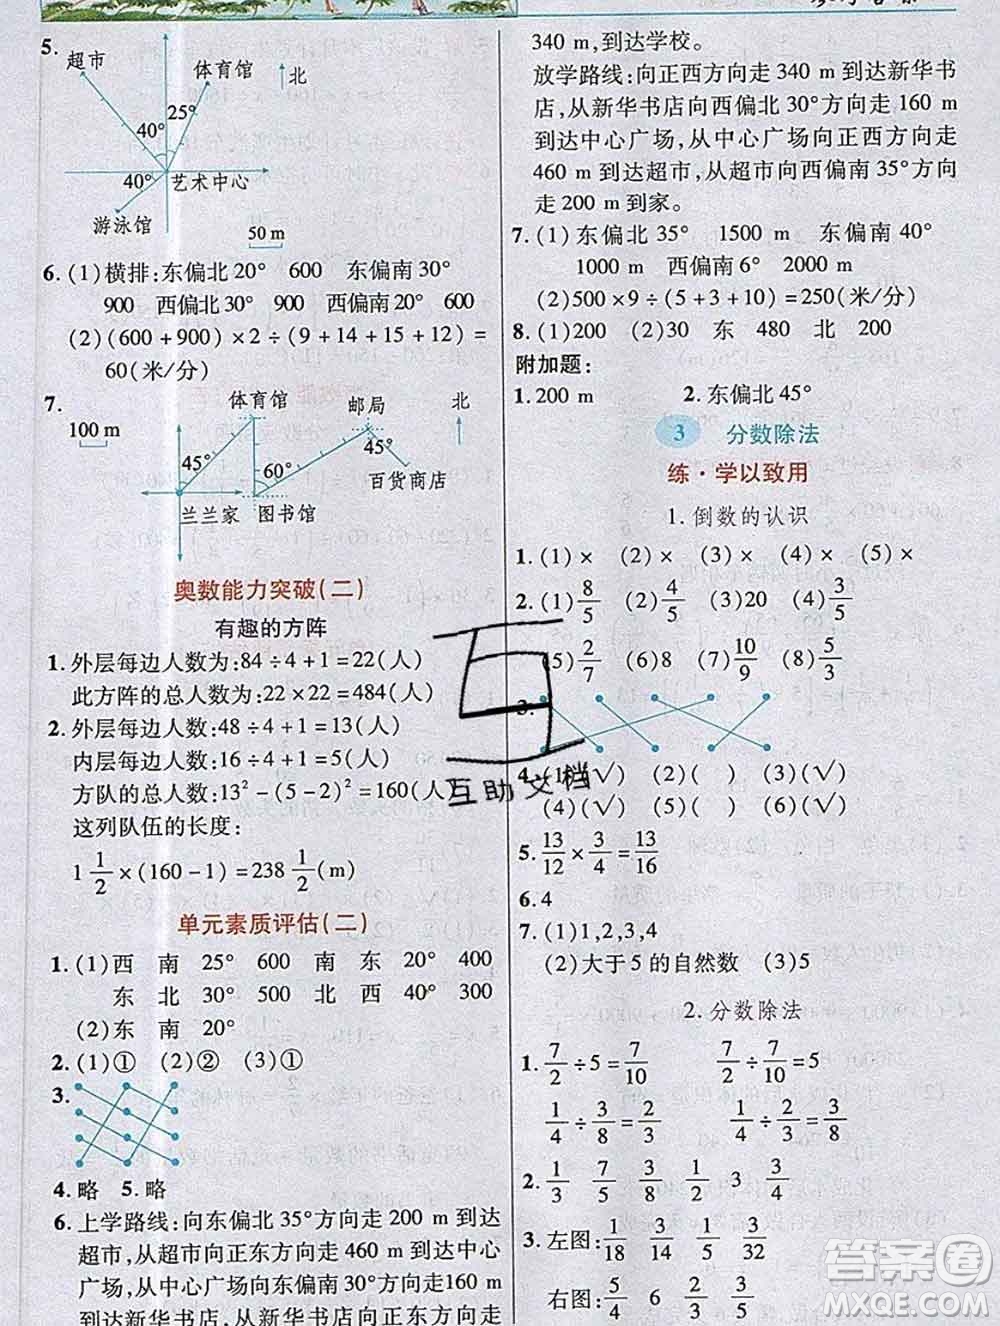 5.
超市
体育馆
北
25°
40°
40°
艺术中心
游泳馆
50 m
6. (1)横排:东偏北20° 600 东偏南30°
900 西偏北30° 900 西偏南20° 600
(2)(600+900)×2÷(9+14+15+12)=
60(米/分)
7.
体育馆
邮局
北
100 m
45°
60°
45°
百货商店
兰兰家
图书馆
奥数能力突破(二)
有趣的方阵
1. 外层每边人数为:84÷4+1=22(人)
此方阵的总人数为:22×22=484(人)
2. 外层每边人数:48÷4+1=13(人)
内层每边人数:16÷4+1=5(人)
方队的总人数:13²-(5-2)²=160(人)
这列队伍的长度:
1 1/2×(160-1)=238 1/2(m)
单元素质评估(二)
1. (1)西 南 25° 600 南 东 20° 400
东 北 30° 500 北 西 40° 300
(2)东 南 20°
2. (1)① (2)② (3)①
3.
4. 略 5. 略
6. 上学路线:向东偏北35°方向走200 m到达
超市,从超市向正东方向走460 m到达中心
广场,从中心广场向东偏南30°方向走160 m
到达新华书店,从新华书店向正东方向走
340 m,到达学校。
放学路线:向正西方向走340 m到达新华书
店,从新华书店向西偏北30°方向走160 m
到达中心广场,从中心广场向正西方向走
460 m到达超市,从超市向西偏南35°方向
走200 m到家。
7. (1)东偏北35° 1500 m 东偏南40°
1000 m 西偏南6° 2000 m
(2)500×9÷(5+3+10)=250(米/分)
8. (1)200 (2)30 东 480 北 200
附加题:
1. 200 m 2. 东偏北45°
3 分数除法
练·学以致用
1. 倒数的认识
1. (1)× (2)× (3)× (4)× (5)×
2. (1)8/5 (2)4/5 (3)20 (4)3/5
(5)2/7 (6)8 (7)10/9 (8)5/3
3.
4. (1)(√) (2)( ) (3)(√)
(4)(√) (5)( ) (6)(√)
5. 13/12×3/4=13/16
6. 4
7. (1)1,2,3,4
(2)大于5的自然数 (3)5
2. 分数除法
1. 7/2÷5=7/10 7/2÷7/10=5
1/4÷8/3=3/32 1/4÷3/32=8/3
2. 1/3 5/7 3/8 1/2 3 3/4
3. 左图:1/18 3/14 1/5 3/32
右图:5/4 6 2/3 3/2
互助文档
答案圈
MXQE.COM